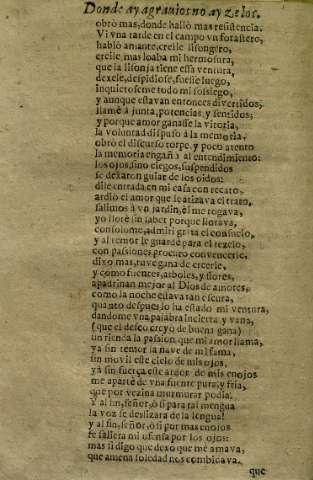 Donde ay agrauios no ay Zelos.
obrò mas, donde hallò mas resistencia.
Vi vna tarde en el campo vn forastero,
hablò amante, creile lisongero,
creile, mas loaba mi hermosura,
que la lisonja tiene essa ventura,
dexele, despidiose, fuesse luego,
inquietoseme todo mi sosiego,
y aunque estavan entonces divertidos,
llamè à junta, potencias, y sentidos;
y porque amor ganasse la vitoria,
la voluntad dispusò à la memoria,
obrò el discurso torpe, y poco atento
la memoria engañò al entendimiento:
los ojos, sino ciegos, suspendidos
se dexaron guiar de los oidos:
dile entrada en mi casa con recato,
ardiò el amor que se atizava el trato,
salimos à vn jardin, èl me rogava,
yo llorè sin saber porque llorava,
consolome, admiti grata el consuelo,
y al temor le guardè para el rezelo,
con passiones procurò convencerle,
dixo mas, tuve gana de creerle,
y como fuentes, arboles, y flores,
apadrinan mejor al Dios de amores,
como la noche estava tan escura,
quanto despues lo ha estado mi ventura,
dandome vna palabra incierta y vana,
(que el deseo creyò de buena gana)
un rienda la passion, que mi amor llama,
ya sin temor la nave de mi fama,
sin movil este cielo de mis ojos,
ya sin fuerça este ardor de mis enojos
me apartè de vna fuente pura, y fria,
que por vezina murmurar podia.
Y al fin, señor, ò si para tal mengua
la voz se deslizara de la lengua!
y al fin, señor, ò si por mas enojos
se saliera mi ofensa por los ojos:
mas si digo que dexo que me amava,
que amena soledad nos combidava,
que